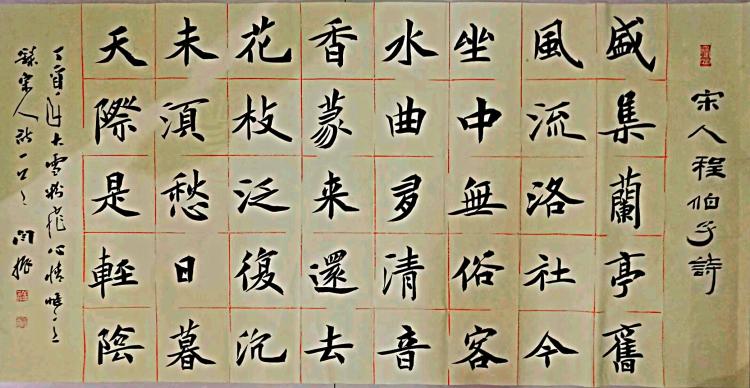 宋人程伯子詩
盛集蘭亭舊
風流洛社今
坐中無俗客
水曲多清音
香篆来還去
花枝泛復沉
未須愁日暮
天際是輕陰
大雪紛飛心情
宋人詩一